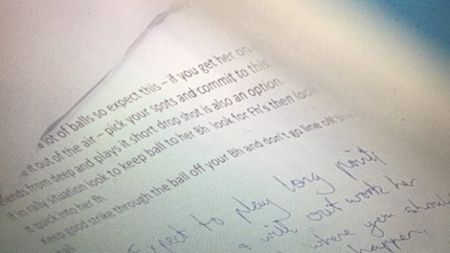 lot of balls so expect this – if you get her on
it out of the air – pick your spots and commit to this.
ends from deep and plays it short drop shot is also an option.
if in rally situation look to keep ball to her Bh look for Fh's then look
it quick into her fh.
Keep good strike through the ball off your Bh and don't go line off
Expect to play long points
I will out work her
where you should
happen.